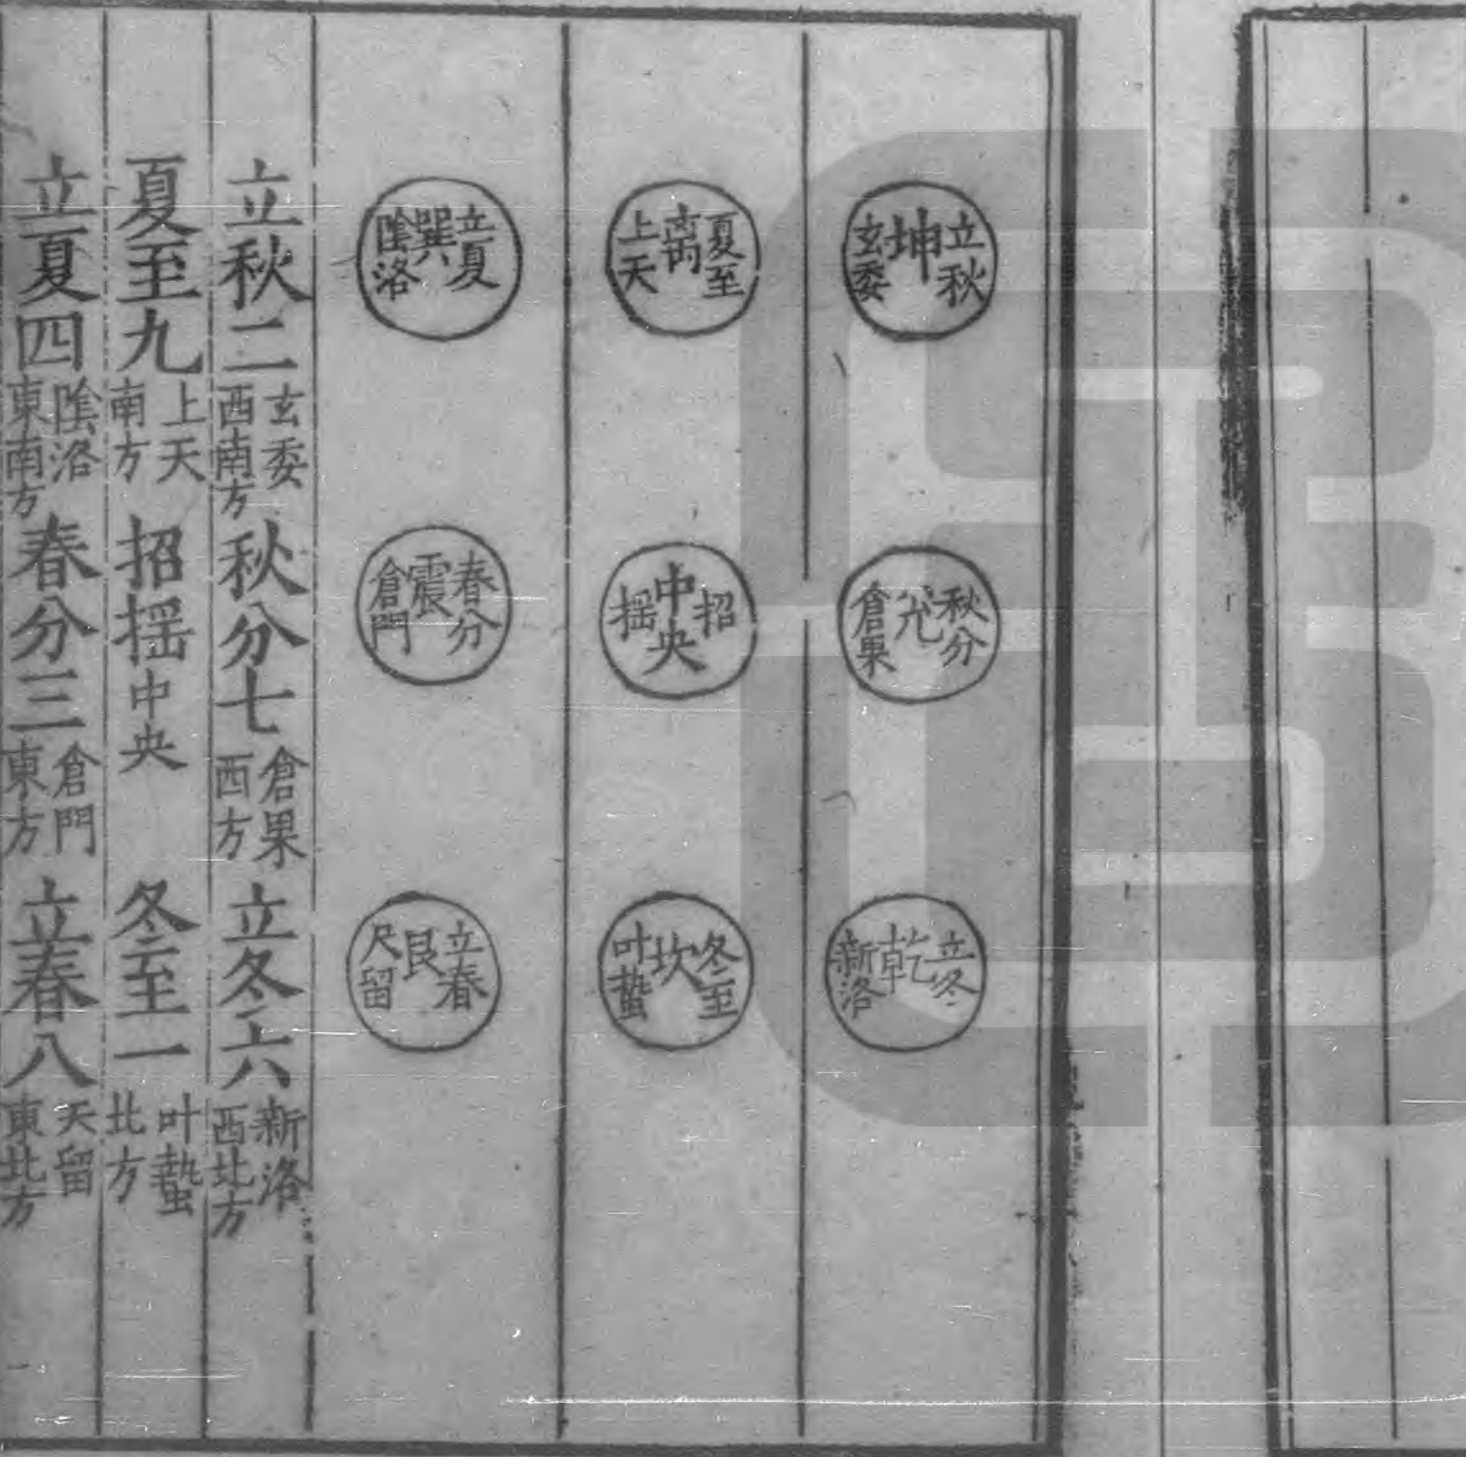 立秋 坤 玄委
秋分 兊 倉果
立冬 乾 新洛
夏至 离 上天
招 中央 揺
冬至 坎 叶蟄
立夏 巽 陰洛
春分 震 倉門
立春 艮 尺留
立秋二 玄委 西南方 秋分七 倉果 西方 立冬六 新洛 西北方
夏至九 上天 南方 招揺 中央 冬至一 叶蟄 北方
立夏四 陰洛 東南方 春分三 倉門 東方 立春八 天留 東北方